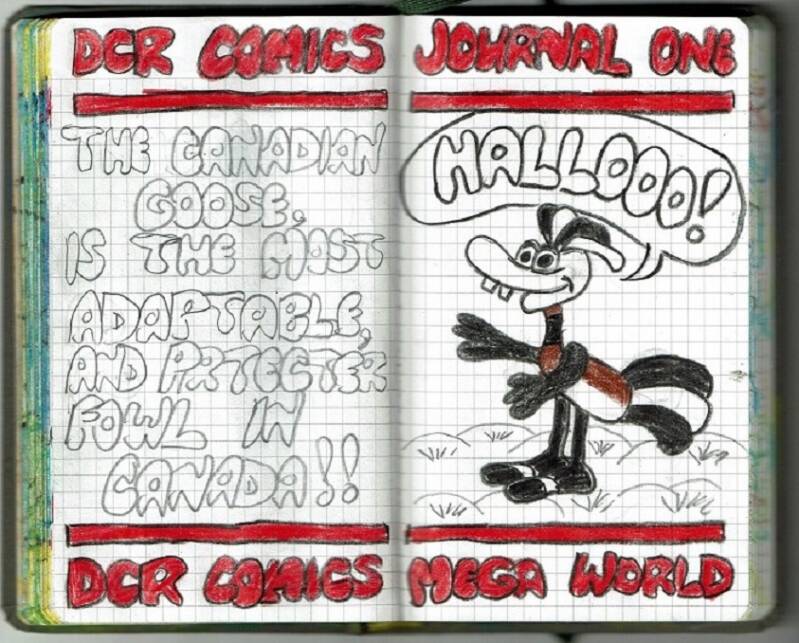 DCR COMICS
THE CANADIAN
GOOSE,
IS THE MOST
ADAPTABLE,
AND PRTECTER
FOWL IN
CANADA!!
DCR COMICS
JOURNAL ONE
HALLOOO!
MEGA WORLD